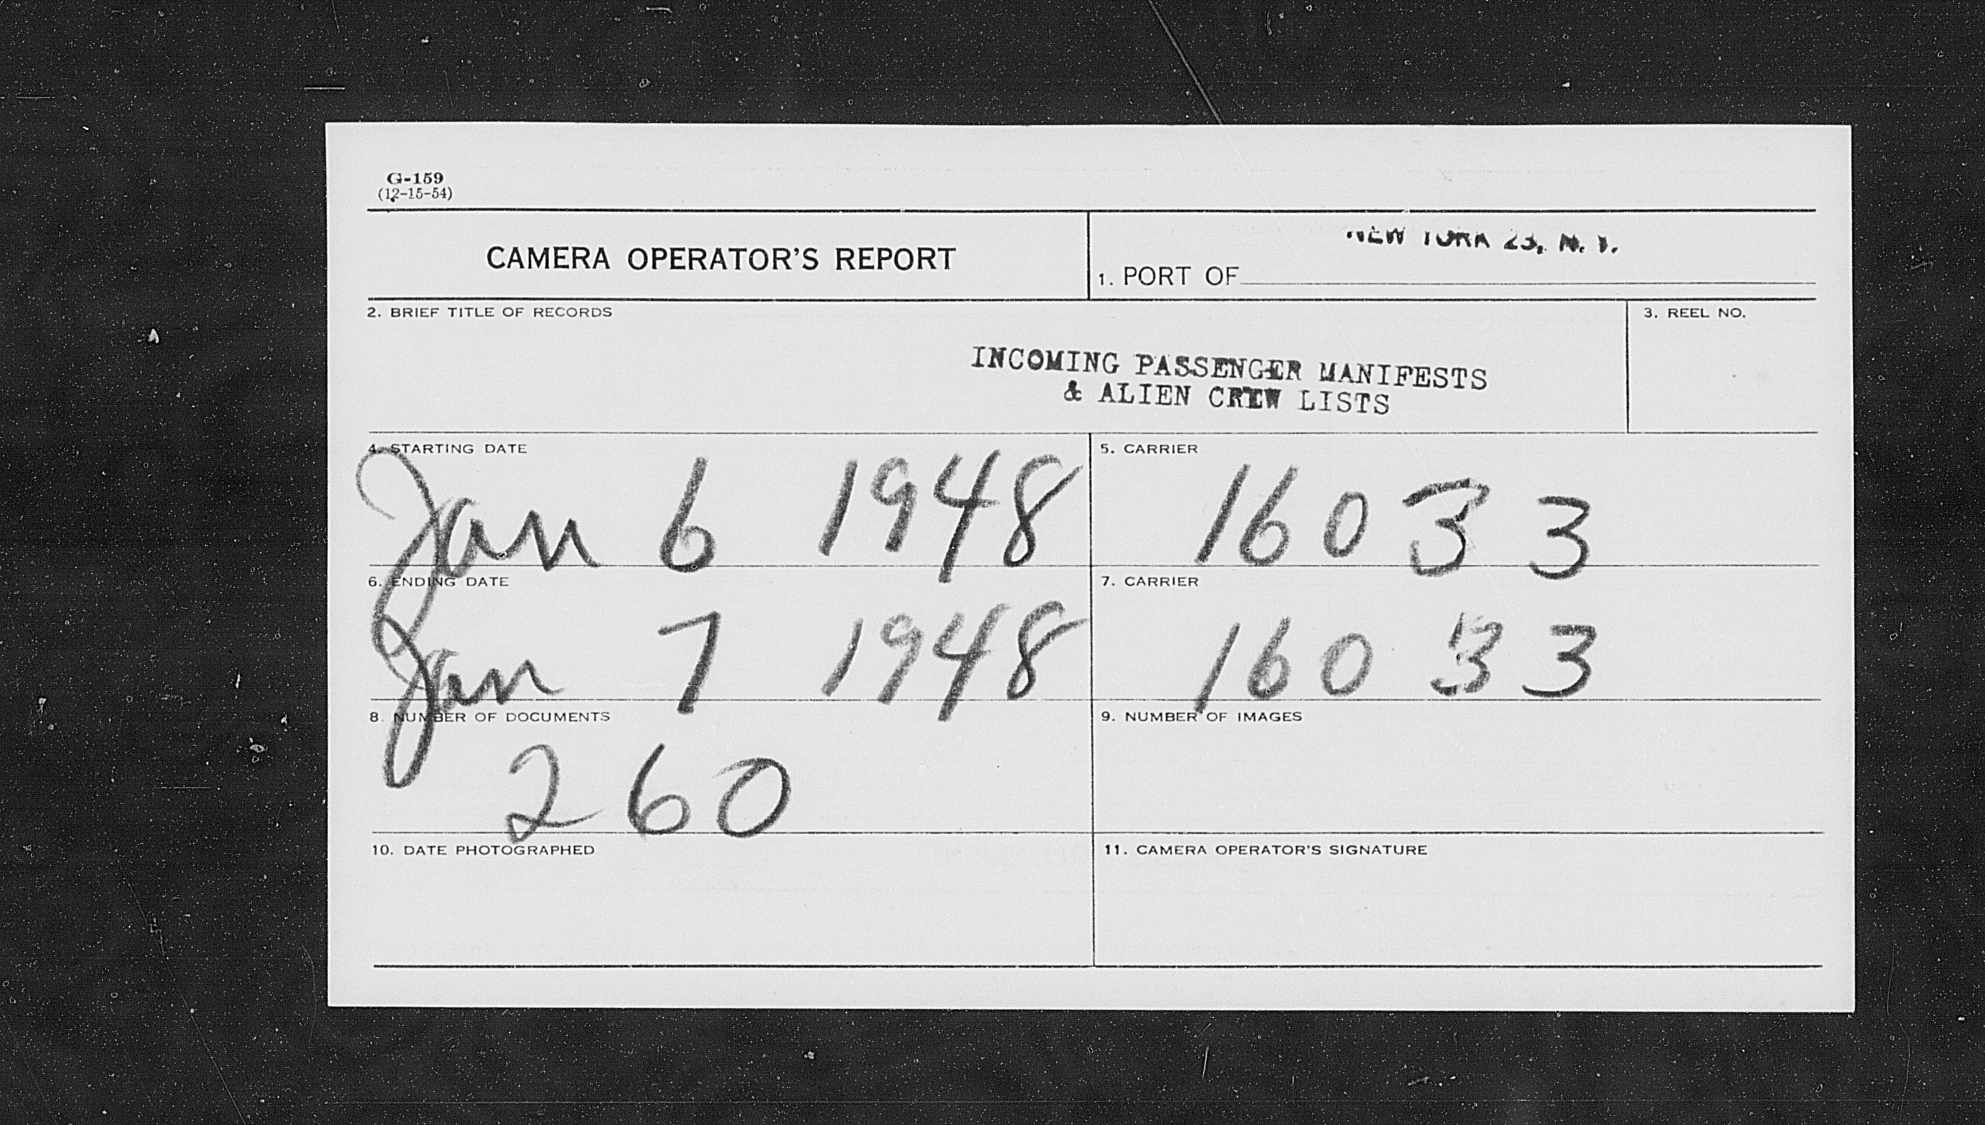 G-159
(12-15-54)
CAMERA OPERATOR'S REPORT
NEW YORK 23, N. Y.
1. PORT OF
2. BRIEF TITLE OF RECORDS
3. REEL NO.
INCOMING PASSENGER MANIFESTS
& ALIEN CREW LISTS
4. STARTING DATE
5. CARRIER
Jan 6 1948
16033
6. ENDING DATE
7. CARRIER
Jan 7 1948
16033
8. NUMBER OF DOCUMENTS
9. NUMBER OF IMAGES
260
10. DATE PHOTOGRAPHED
11. CAMERA OPERATOR'S SIGNATURE